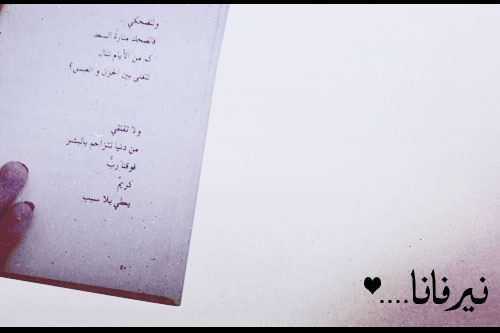 ولتضحكي ..
فالضحك منارة السعد
كم من الأيام تنال
لتفنى بين الحزن و العبس؟
ولا تقلقي
من دنيا تتزاحم بالبشر
فوقنا ربٌّ
كريمٌ
يعطي بلا سبب
٥٠
نيرفانا....♥